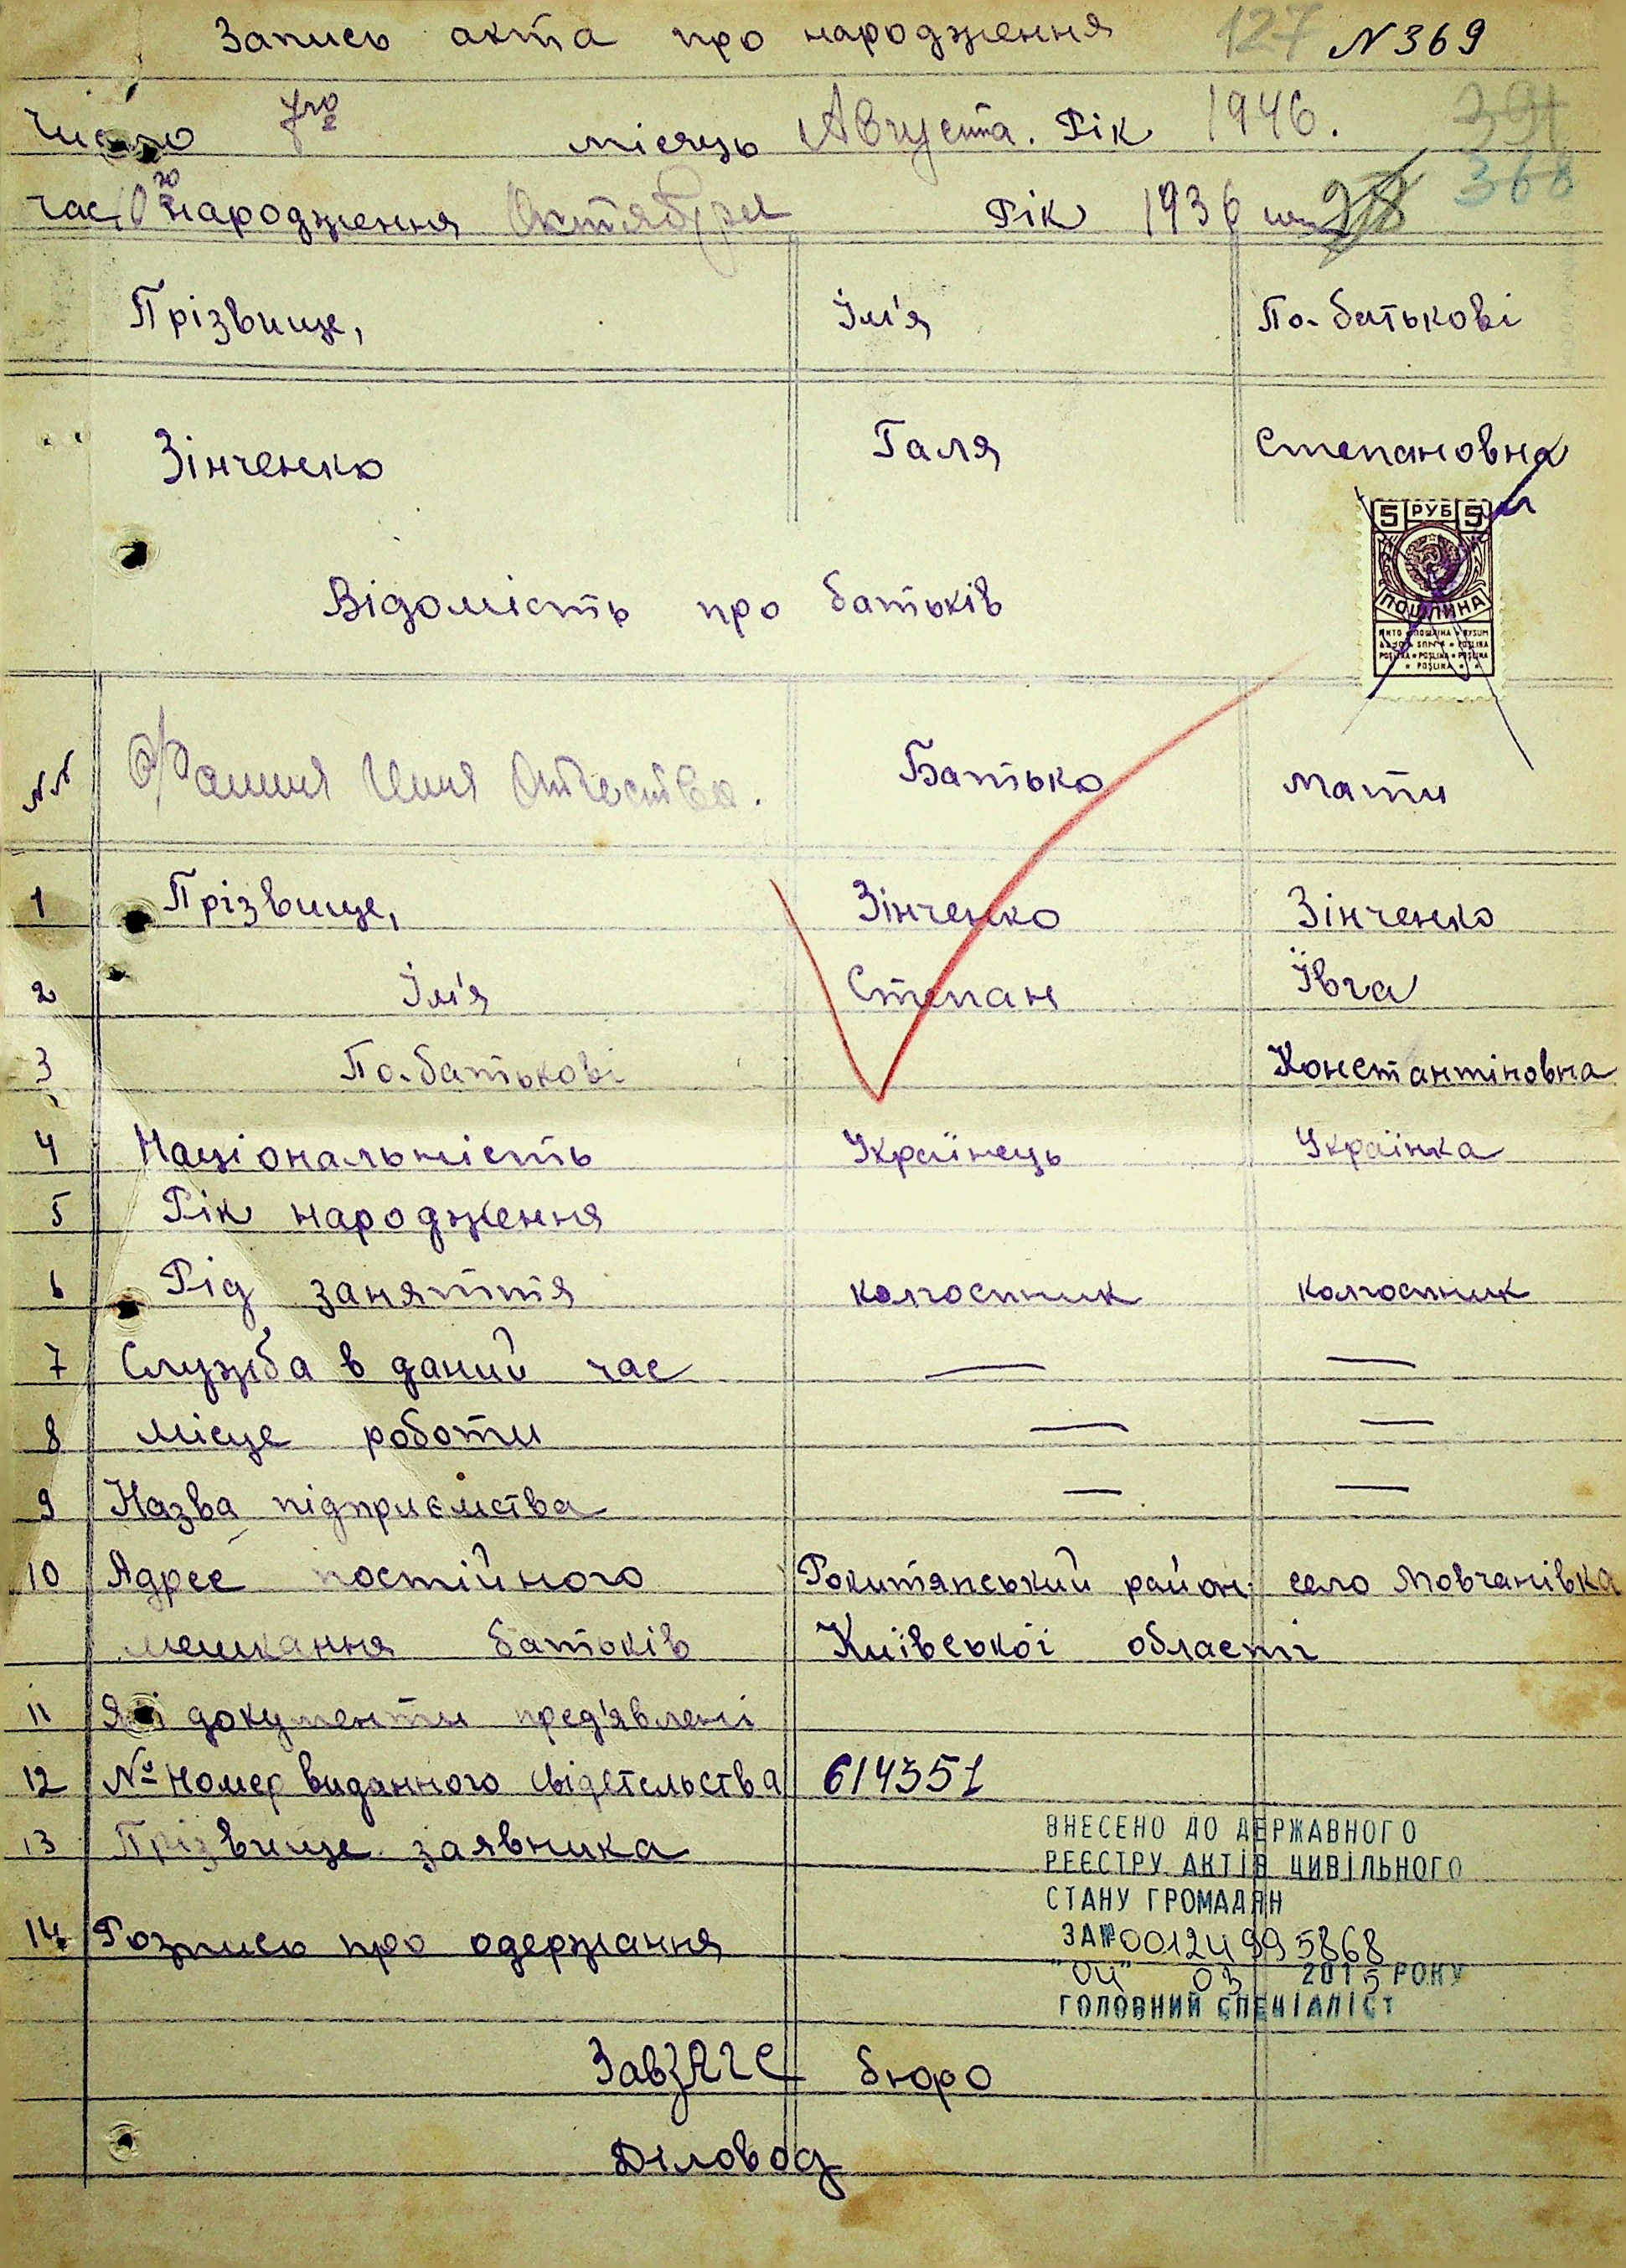 Запись акта про народження 127 N 369
Число 7го місяць Августа. Рік 1946. 391
368
час 10го народження Октября Рік 1936
Прізвище, Їм'я По-батькові
Зінченко Галя Степановна
5 РУБ 5
ПОШЛИНА
Відомість про батьків
NN Фамилия Имя Отчество. Батько Мати
1 Прізвище, Зінченко Зінченко
2 Їм'я Степан Ївга
3 По-батькові Константіновна
4 Національність Українець Українка
5 Рік народження
6 Рід заняття колгоспник колгоспник
7 Служба в даний час — —
8 Місце роботи — —
9 Назва підприємства — —
10 Адрес постійного Рокитянський район село Мовчанівка
мешкання батьків Київської області
11 Які документи пред'явлені
12 № номер виданного свідетельства 614351
13 Прізвище заявника
14. Розпись про одержання
ВНЕСЕНО ДО ДЕРЖАВНОГО
РЕЄСТРУ АКТІВ ЦИВІЛЬНОГО
СТАНУ ГРОМАДЯН
ЗА № 00124995868
"04" 03 2015 РОКУ
ГОЛОВНИЙ СПЕЦІАЛІСТ
Зав ЗАГС бюро
Діловод